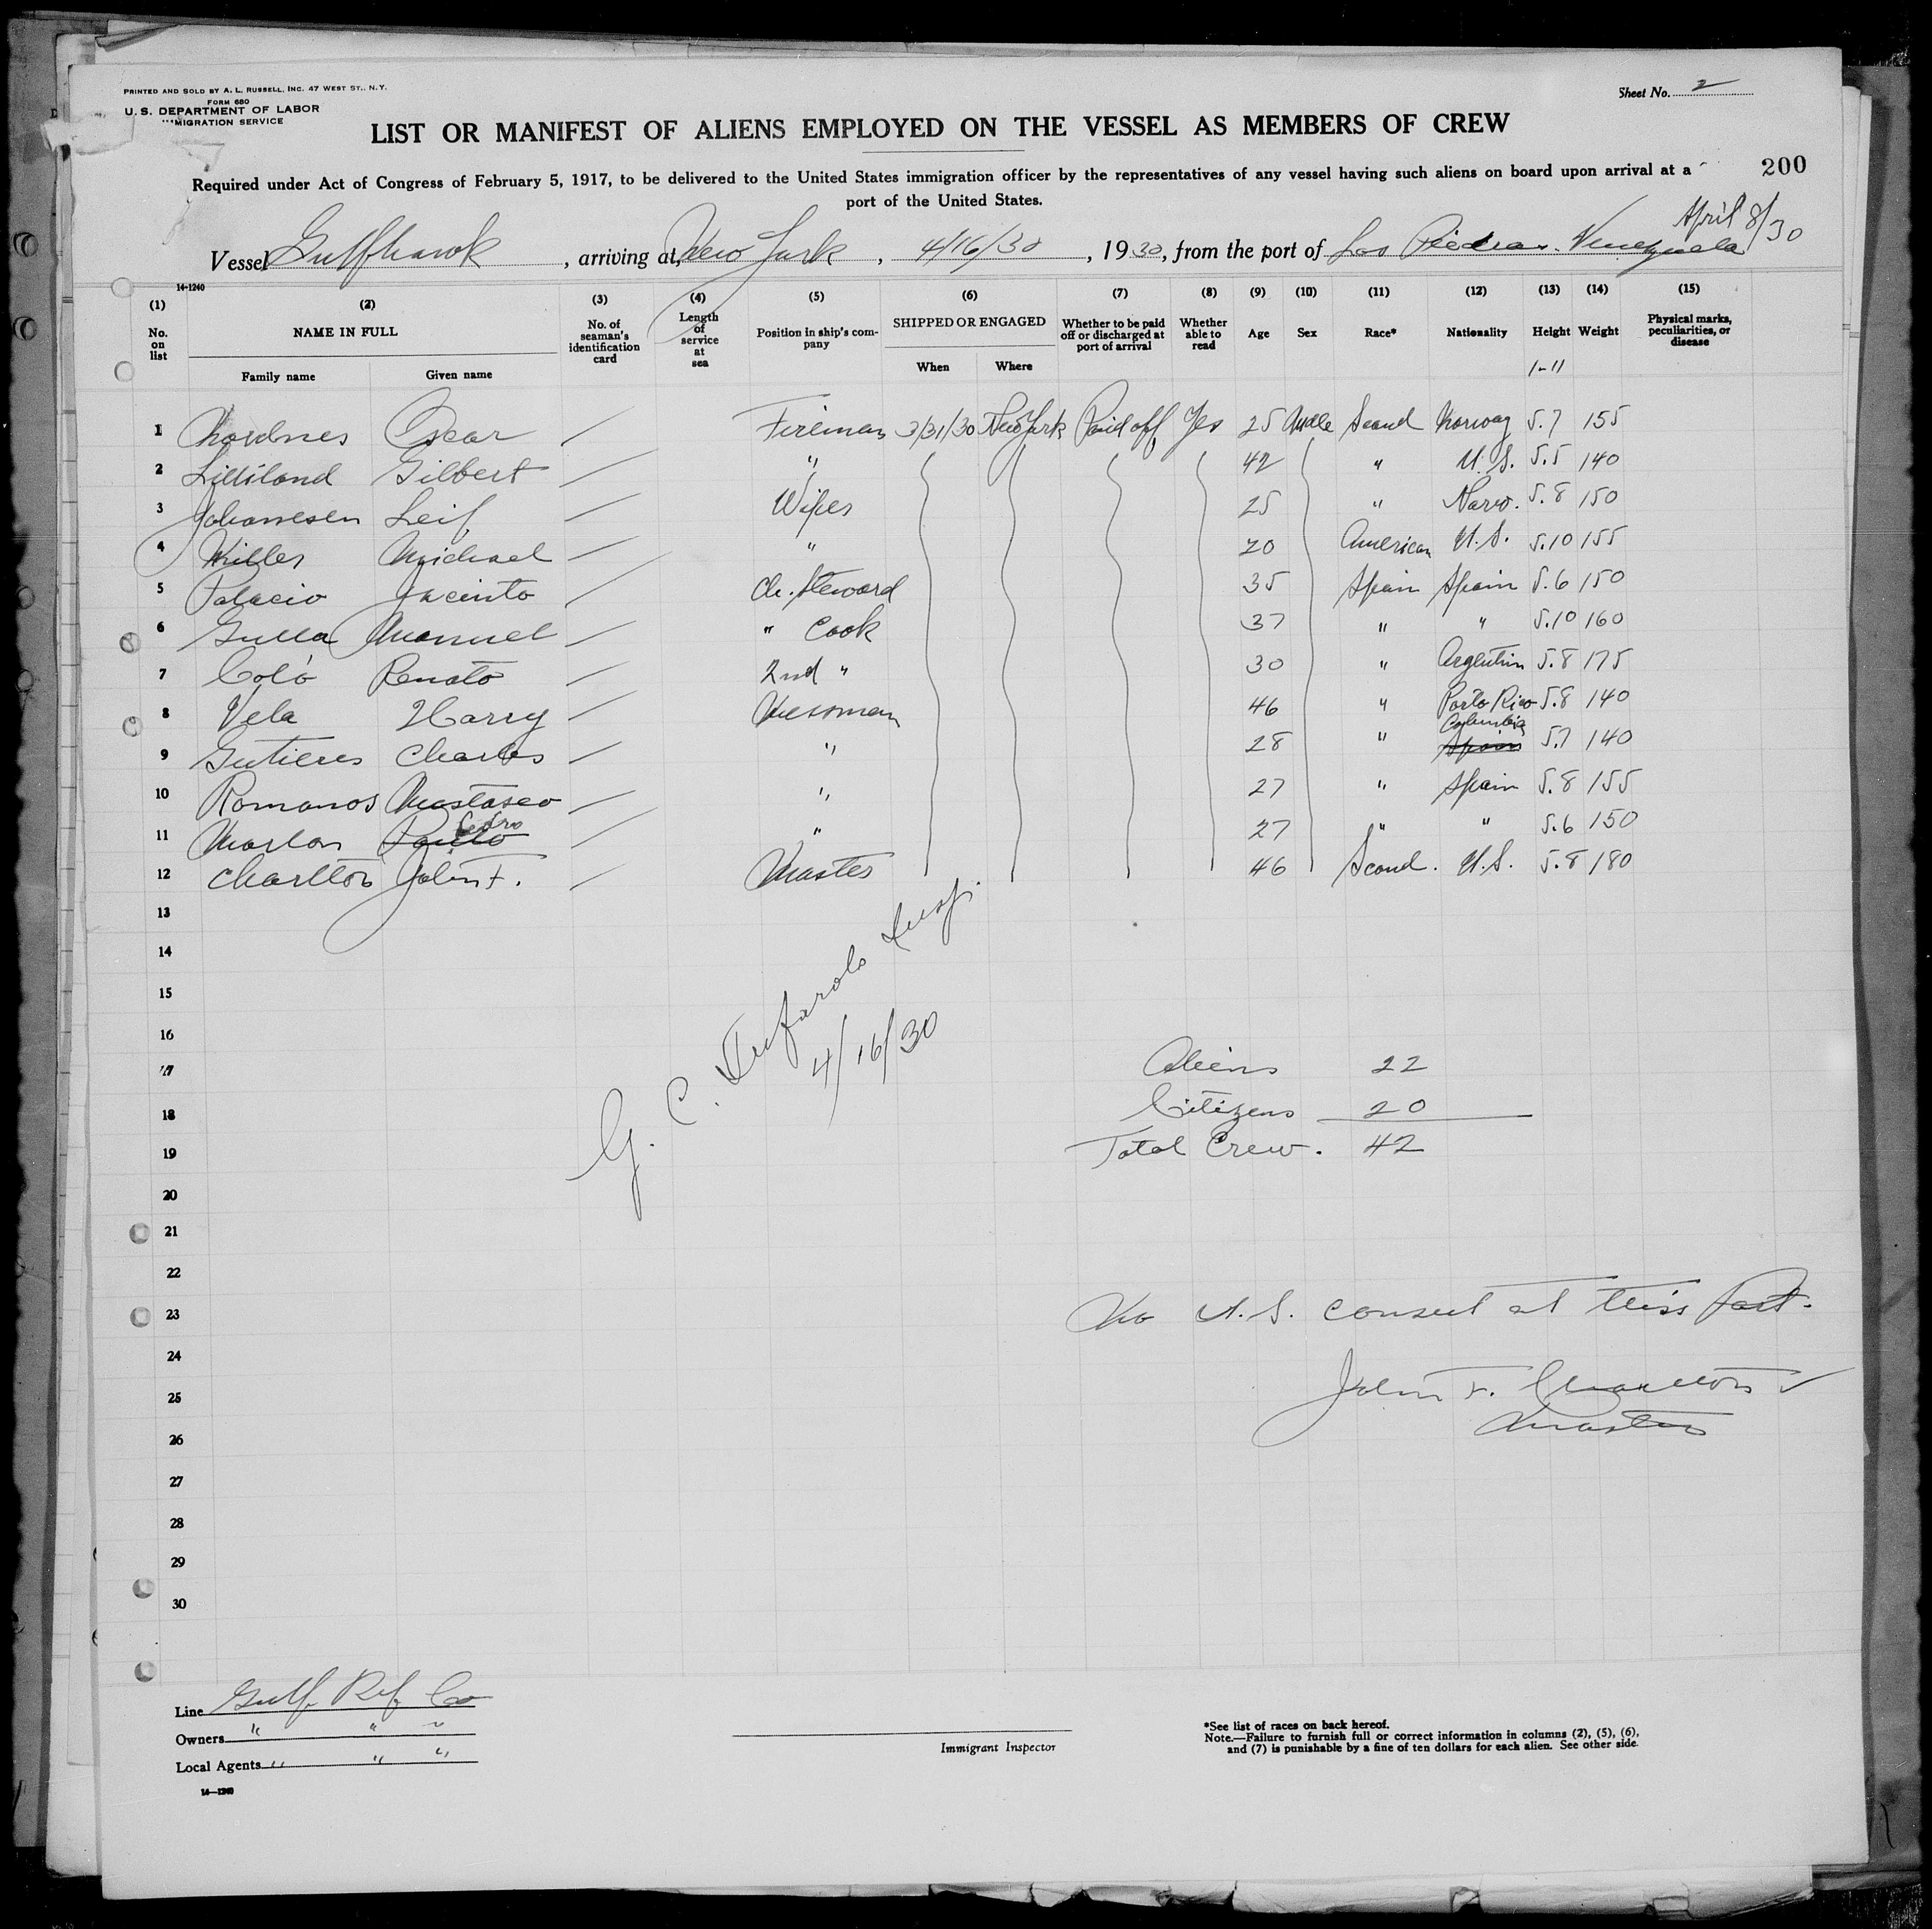 PRINTED AND SOLD BY A. L. RUSSELL, INC. 47 WEST ST., N.Y.
FORM 680
U. S. DEPARTMENT OF LABOR
MIGRATION SERVICE
Sheet No. 2
LIST OR MANIFEST OF ALIENS EMPLOYED ON THE VESSEL AS MEMBERS OF CREW
200
Required under Act of Congress of February 5, 1917, to be delivered to the United States immigration officer by the representatives of any vessel having such aliens on board upon arrival at a
port of the United States.
April 8/30
Vessel Gulfhawk, arriving at New York, 4/16/30, 1930, from the port of Las Piedras Venezuela
14-1240
(1) (2) (3) (4) (5) (6) (7) (8) (9) (10) (11) (12) (13) (14) (15)
No. on list NAME IN FULL No. of seaman's identification card Length of service at sea Position in ship's company SHIPPED OR ENGAGED Whether to be paid off or discharged at port of arrival Whether able to read Age Sex Race* Nationality Height Weight Physical marks, peculiarities, or disease
Family name Given name When Where 1-11
1 Nordnes Oscar / Fireman 3/31/30 New York Paid off Yes 25 Male Scand Norway 5.7 155
2 Gilbert / " 42 " U.S. 5.5 140
3 Johannesen Leif / Wiper 25 " Norw. 5.8 150
4 Miller Michael / " 20 American U.S. 5.10 155
5 Palacio Jacinto / Ch. Steward 35 Spain Spain 5.6 150
6 Manuel / " Cook 37 " " 5.10 160
7 Coló Renato / 2nd " 30 " Argentin 5.8 175
8 Vela Harry / Messman 46 " Porto Rico 5.8 140
9 Gutieres Charles / " 28 " Spain Columbia 5.7 140
10 Romanos / " 27 " Spain 5.8 155
11 Pedro / " 27 " " 5.6 150
12 Charlton John F. / Master 46 Scand. U.S. 5.8 180
13
14
15
16
17
18
19
20
21
22
23
24
25
26
27
28
29
30
G. C. Insp.
4/16/30
Aliens 22
Citizens 20
Total Crew. 42
No U.S. consul at this Port.
John F. Charlton
Master
Line Gulf Ref Co
Owners " " "
Local Agents " " "
14—1240
Immigrant Inspector
*See list of races on back hereof.
Note.—Failure to furnish full or correct information in columns (2), (5), (6),
and (7) is punishable by a fine of ten dollars for each alien. See other side.